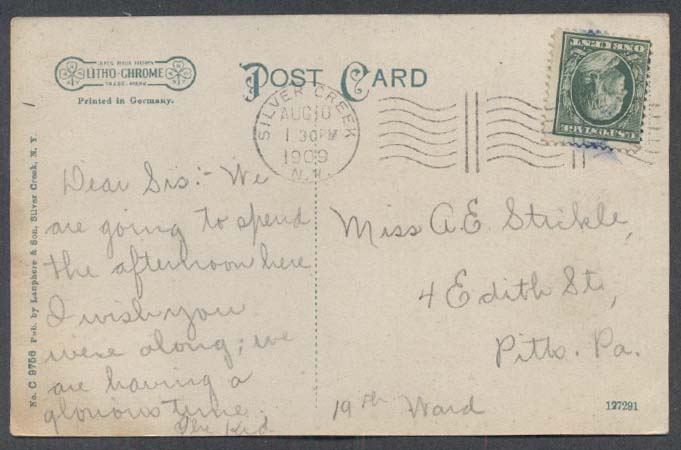 LITHO-CHROME
TRADE MARK
Printed in Germany.
POST CARD
SILVER CREEK
AUG 10
1 30 PM
1909
N.Y.
U.S. POSTAGE
ONE CENT
No. C 9756 Pub. by Lanphere & Son, Silver Creek, N. Y.
Dear Sis:- We
are going to spend
the afternoon here
I wish you
were along; we
are having a
glorious time.
The Kid
Miss A.E. Strickle,
4 Edith St,
Pitts. Pa.
19th Ward
127291